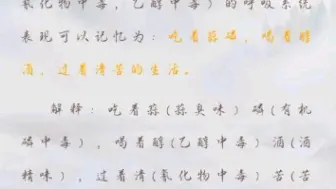 氰化物中毒,乙醇中毒)的呼吸系统
表现可以记忆为:吃着蒜磷,喝着醇
酒,过着清苦的生活。
解释:吃着蒜(蒜臭味)磷(有机
磷中毒),喝着醇(乙醇中毒)酒(酒
精味),过着清(氰化物中毒)苦(苦